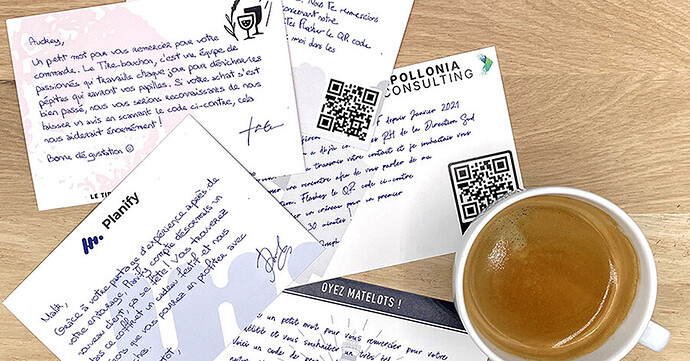 Audrey,
Un petit mot pour vous remercier pour votre
commande. Le Tire-bouchon, c'est une équipe de
passionnés qui travaille chaque jour pour dénicher les
pépites qui raviront vos papilles. Si votre achat s'est
bien passé, nous vous serions reconnaissants de nous
laisser un avis en scannant le code ci-contre, cela
nous aiderait énormément !
Bonne dégustation
LE TIR
Nous te remercions
concernant notre
Flasher le QR code
moi dans les
POLLONIA
CONSULTING
depuis Janvier 2021
a déjà RH de la Direction Sud
transmis votre contact et je souhaitais vous
rencontre afin de vous parler de ma
Flashez le QR code ci-contre
créneau pour un premier
30 minutes
Planify
Malik,
Grâce à votre partage d'expérience auprès de
votre entourage, Planify compte désormais un
nouveau client, ça se fête ! Vous trouverez
ce coffret un cadeau festif et nous
que vous pourrez en profiter avec
OYEZ MATELOTS !
un petit mot pour vous remercier pour votre
et vous souhaiter un très bel
un code de